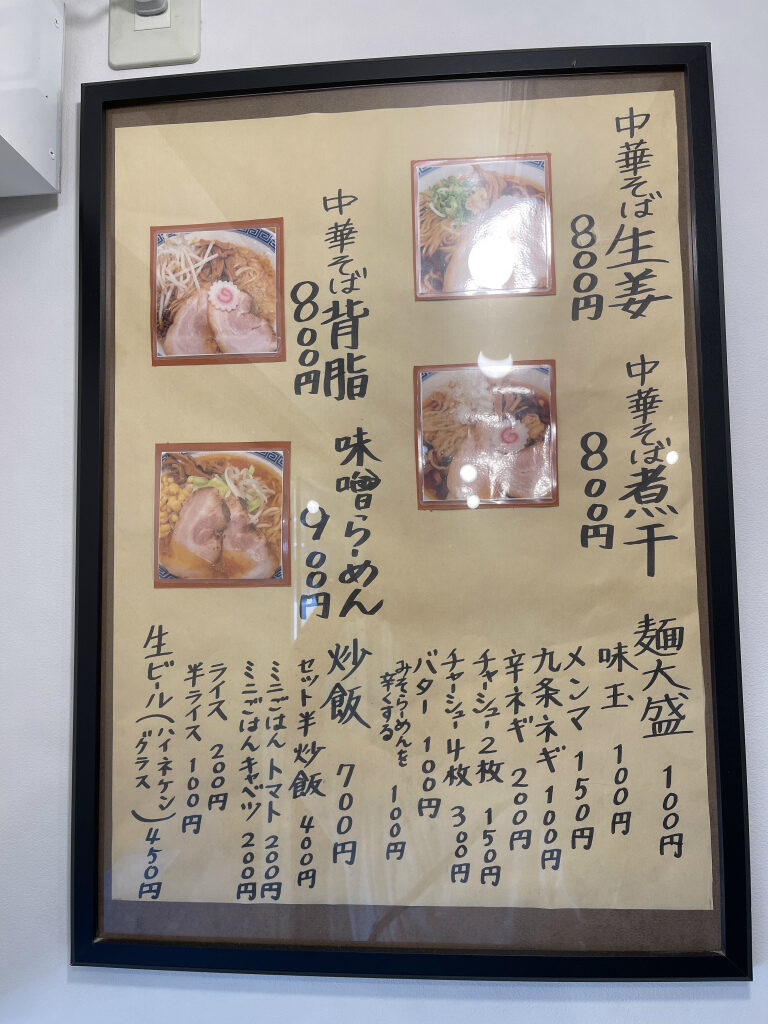 中華そば生姜
800円
中華そば煮干
800円
中華そば背脂
800円
味噌らーめん
900円
麺大盛 100円
味玉 100円
メンマ 150円
九条ネギ 100円
辛ネギ 200円
チャーシュー2枚 150円
チャーシュー4枚 300円
バター 100円
みそらーめんを
辛くする 100円
炒飯 700円
セット半炒飯 400円
ミニごはん トマト 200円
ミニごはんキャベツ 200円
ライス 200円
半ライス 100円
生ビール(ハイネケン)
グラス 450円